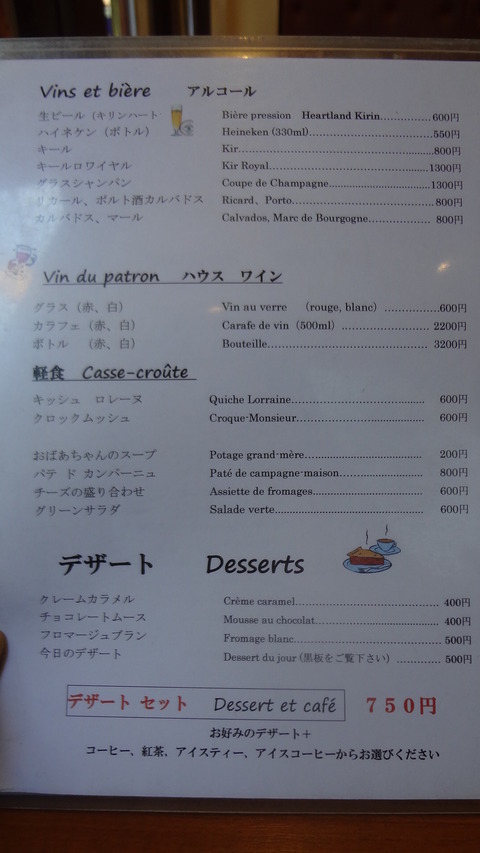 Vins et bière アルコール
生ビール（キリンハート Bière pression Heartland Kirin……………600円
ハイネケン（ボトル） Heineken (330ml)……………………………550円
キール Kir……………………………………………800円
キールロワイヤル Kir Royal……………………………………1300円
グラスシャンパン Coupe de Champagne……………………1300円
リカール、ポルト酒カルバドス Ricard、Porto………………………………800円
カルバドス、マール Calvados, Marc de Bourgogne……………… 800円
Vin du patron ハウス ワイン
グラス（赤、白） Vin au verre （rouge, blanc） ………………600円
カラフェ（赤、白） Carafe de vin（500ml）…………………… 2200円
ボトル （赤、白） Bouteille…………………………………… 3200円
軽食 Casse-croûte
キッシュ ロレーヌ Quiche Lorraine……………………………… 600円
クロックムッシュ Croque-Monsieur…………………………… 600円
おばあちゃんのスープ Potage grand-mère………………………… 200円
パテ ド カンパーニュ Paté de campagne-maison………………… 800円
チーズの盛り合わせ Assiette de fromages……………………… 600円
グリーンサラダ Salade verte………………………………… 600円
デザート Desserts
クレームカラメル Crème caramel………………………………… 400円
チョコレートムース Mousse au chocolat…………………………… 400円
フロマージュブラン Fromage blanc………………………………… 500円
今日のデザート Dessert du jour (黒板をご覧下さい) ………… 500円
デザート セット Dessert et café ７５０円
お好みのデザート＋
コーヒー、紅茶、アイスティー、アイスコーヒーからお選びください